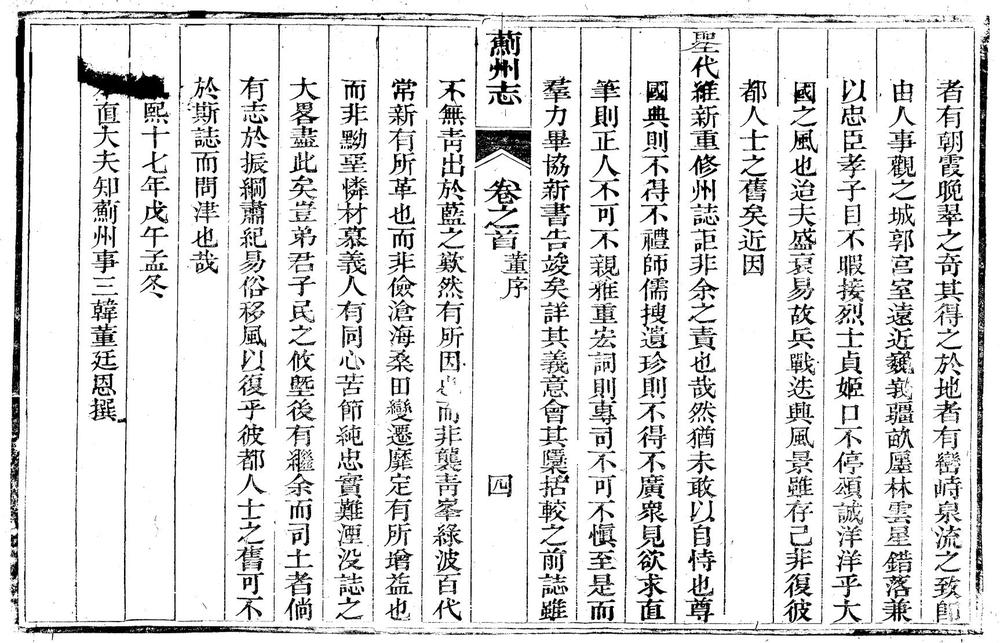 者有朝霞晚翠之奇其得之於地者有巒峙泉流之致師
由人事觀之城郭宮室遠近巍峩疆畝廛林雲星錯落兼
以忠臣孝子目不暇接烈士貞姬口不停頌誠洋洋乎大
國之風也迨夫盛衰易故兵戰迭興風景雖存己非復彼
都人士之舊矣近因
聖代維新重修州誌詎非余之責也哉然猶未敢以自恃也尊
國典則不得不禮師儒搜遺珍則不得不廣衆見欲求直
筆則正人不可不親雅重宏詞則專司不可不愼至是而
羣力畢協新書告竣矣詳其義意會其檃括較之前誌雖
薊州志 卷之首 董序 四
不無靑出於藍之歎然有所因也而非襲靑峯綠波百代
常新有所革也而非儉滄海桑田變遷靡定有所增益也
而非黝堊憐材慕義人有同心苦節純忠實難湮没誌之
大畧盡此矣豈弟君子民之攸墍後有繼余而司土者倘
有志於振綱肅紀易俗移風以復乎彼都人士之舊可不
於斯誌而問津也哉
熙十七年戊午孟冬
直大夫知薊州事三韓董廷恩撰